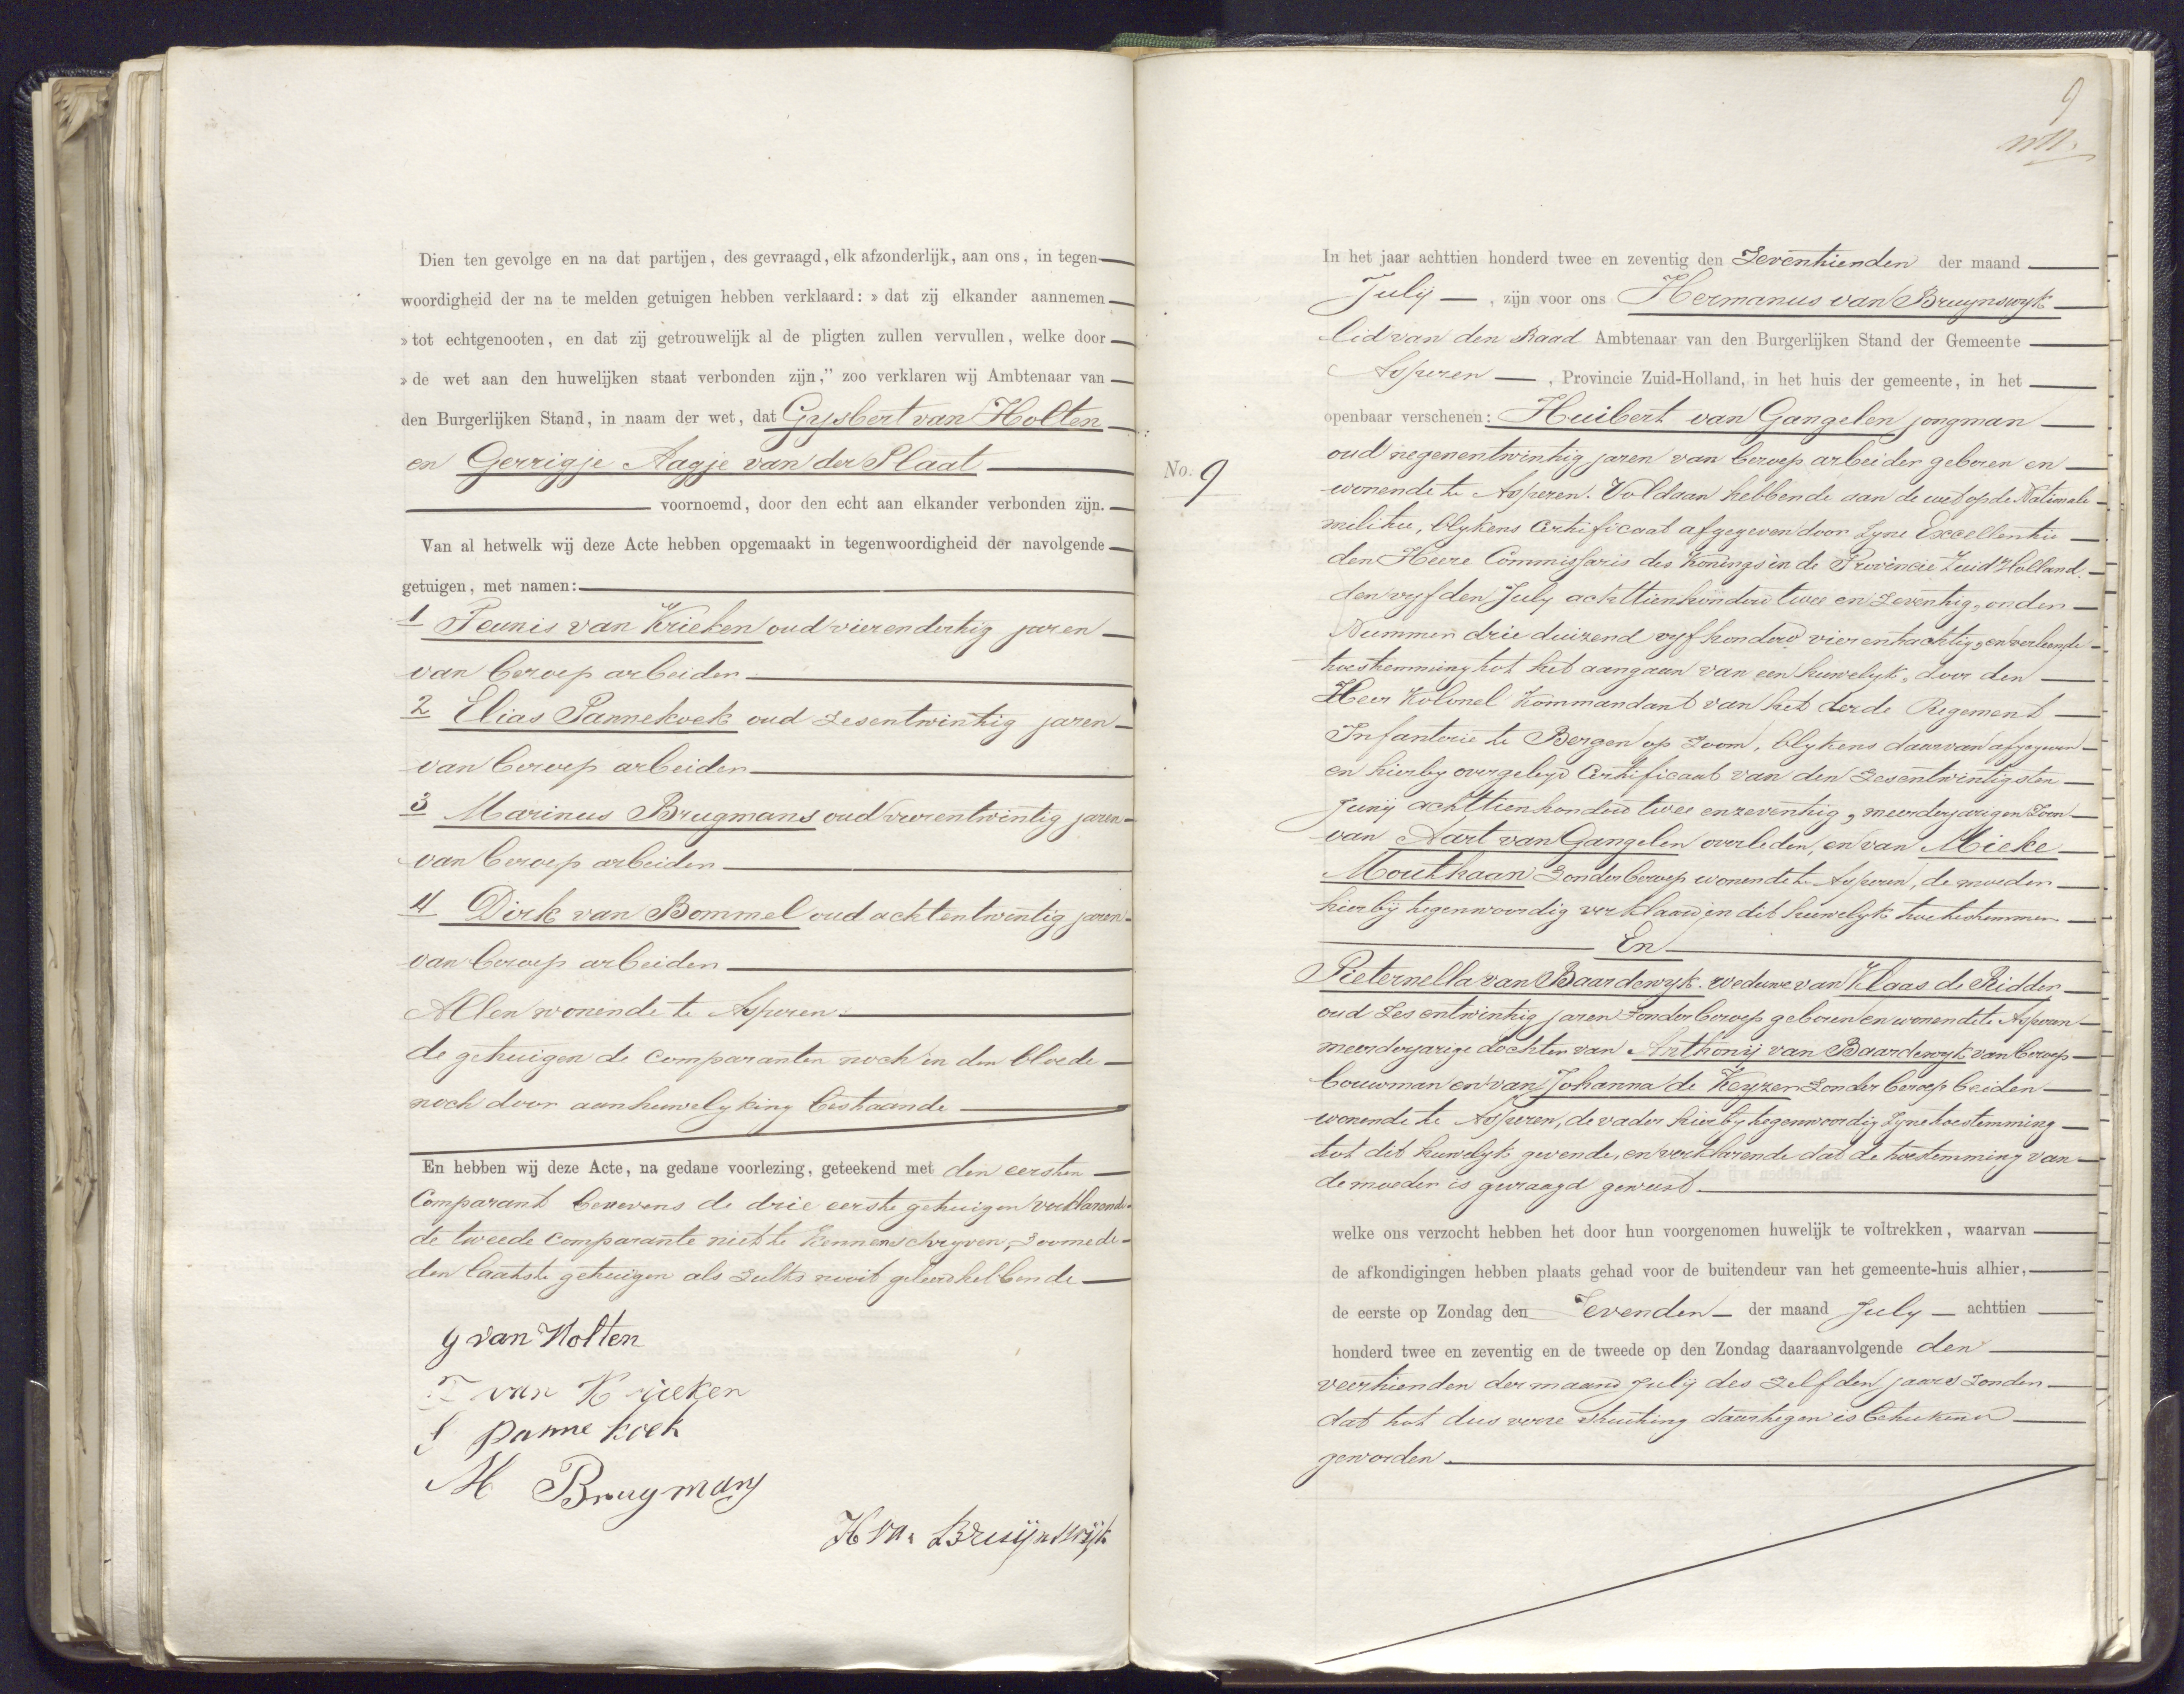 Dien ten gevolge en na dat partijen, des gevraagd, elk afzonderlijk, aan ons, in tegen-
woordigheid der na te melden getuigen hebben verklaard: » dat zij elkander aannemen
» tot echtgenooten, en dat zij getrouwelijk al de pligten zullen vervullen, welke door
» de wet aan den huwelijken staat verbonden zijn," zoo verklaren wij Ambtenaar van
den Burgerlijken Stand, in naam der wet, dat Gysbert van Holten
en Gerrigje Aagje van der Plaat
voornoemd, door den echt aan elkander verbonden zijn.
Van al hetwelk wij deze Acte hebben opgemaakt in tegenwoordigheid der navolgende
getuigen, met namen:
1 Teunis van Krieken oud vierendertig jaren
van beroep arbeider
2 Elias Pannekoek oud zesentwintig jaren
van beroep arbeider
3 Marinus Brugmans oud vierentwintig jaren
van beroep arbeider
4 Dirk van Bommel oud achtentwintig jaren
van beroep arbeider
Allen wonende te Asperen
de getuigen de comparanten noch in den bloede
noch door aanhuwelyking bestaande
En hebben wij deze Acte, na gedane voorlezing, geteekend met den eersten
Comparant benevens de drie eerste getuigen verklarende
de tweede comparante niet te kennen schryven, zoomede
den laatste getuigen als zulks nooit geleerd hebbende
G van Holten
T van Krieken
E Pannekoek
M Brugmans
H van Bruijnswijk
9
No. 9
In het jaar achttien honderd twee en zeventig den Zeventienden der maand
July, zijn voor ons Hermanus van Bruynswyk
lid van den Raad Ambtenaar van den Burgerlijken Stand der Gemeente
Asperen, Provincie Zuid-Holland, in het huis der gemeente, in het
openbaar verschenen: Huibert van Gangelen jongman
oud negenentwintig jaren van beroep arbeider geboren en
wonende te Asperen. Voldaan hebbende aan de wet op de Nationale
militie, blykens Certificaat afgegeven door Zyne Excellentie
den Heere Commissaris des Konings in de Provincie Zuid Holland.
den vyfden July achttienhonderd twee en zeventig, onder
Nummer drie duizend vyfhonderd vierentachtig, en verleende
toestemming tot het aangaan van een huwelyk, door den
Heer Kolonel Kommandant van het derde Regement
Infanterie te Bergen op Zoom, blykens daarvan afgegeven
en hierby overgelegd Certificaat van den zesentwintigsten
Junij achttienhonderd twee en zeventig, meerderjarigen Zoon
van Aart van Gangelen overleden, en van Mieke
Mouthaan zonder beroep wonende te Asperen, de moeder
hierbij tegenwoordig verklaard in dit huwelyk toetestemmen
En
Pieternella van Baardewyk. weduwe van Klaas de Ridder
oud zesentwintig jaren zonder beroep geboren en wonende te Asperen
meerderjarige dochter van Anthonij van Baardewyk van beroep
bouwman en van Johanna de Keyzer zonder beroep beiden
wonende te Asperen, de vader hierby tegenwoordig Zyne toestemming
tot dit huwelyk gevende, en verklarende dat de toestemming van
de moeder is gevraagd geweest
welke ons verzocht hebben het door hun voorgenomen huwelijk te voltrekken, waarvan
de afkondigingen hebben plaats gehad voor de buitendeur van het gemeente-huis alhier,
de eerste op Zondag den Zevenden der maand July achttien
honderd twee en zeventig en de tweede op den Zondag daaraanvolgende den
veertienden der maand July des zelfden jaars zonder
dat tot dus verre stuiting daartegen is beteekend
geworden